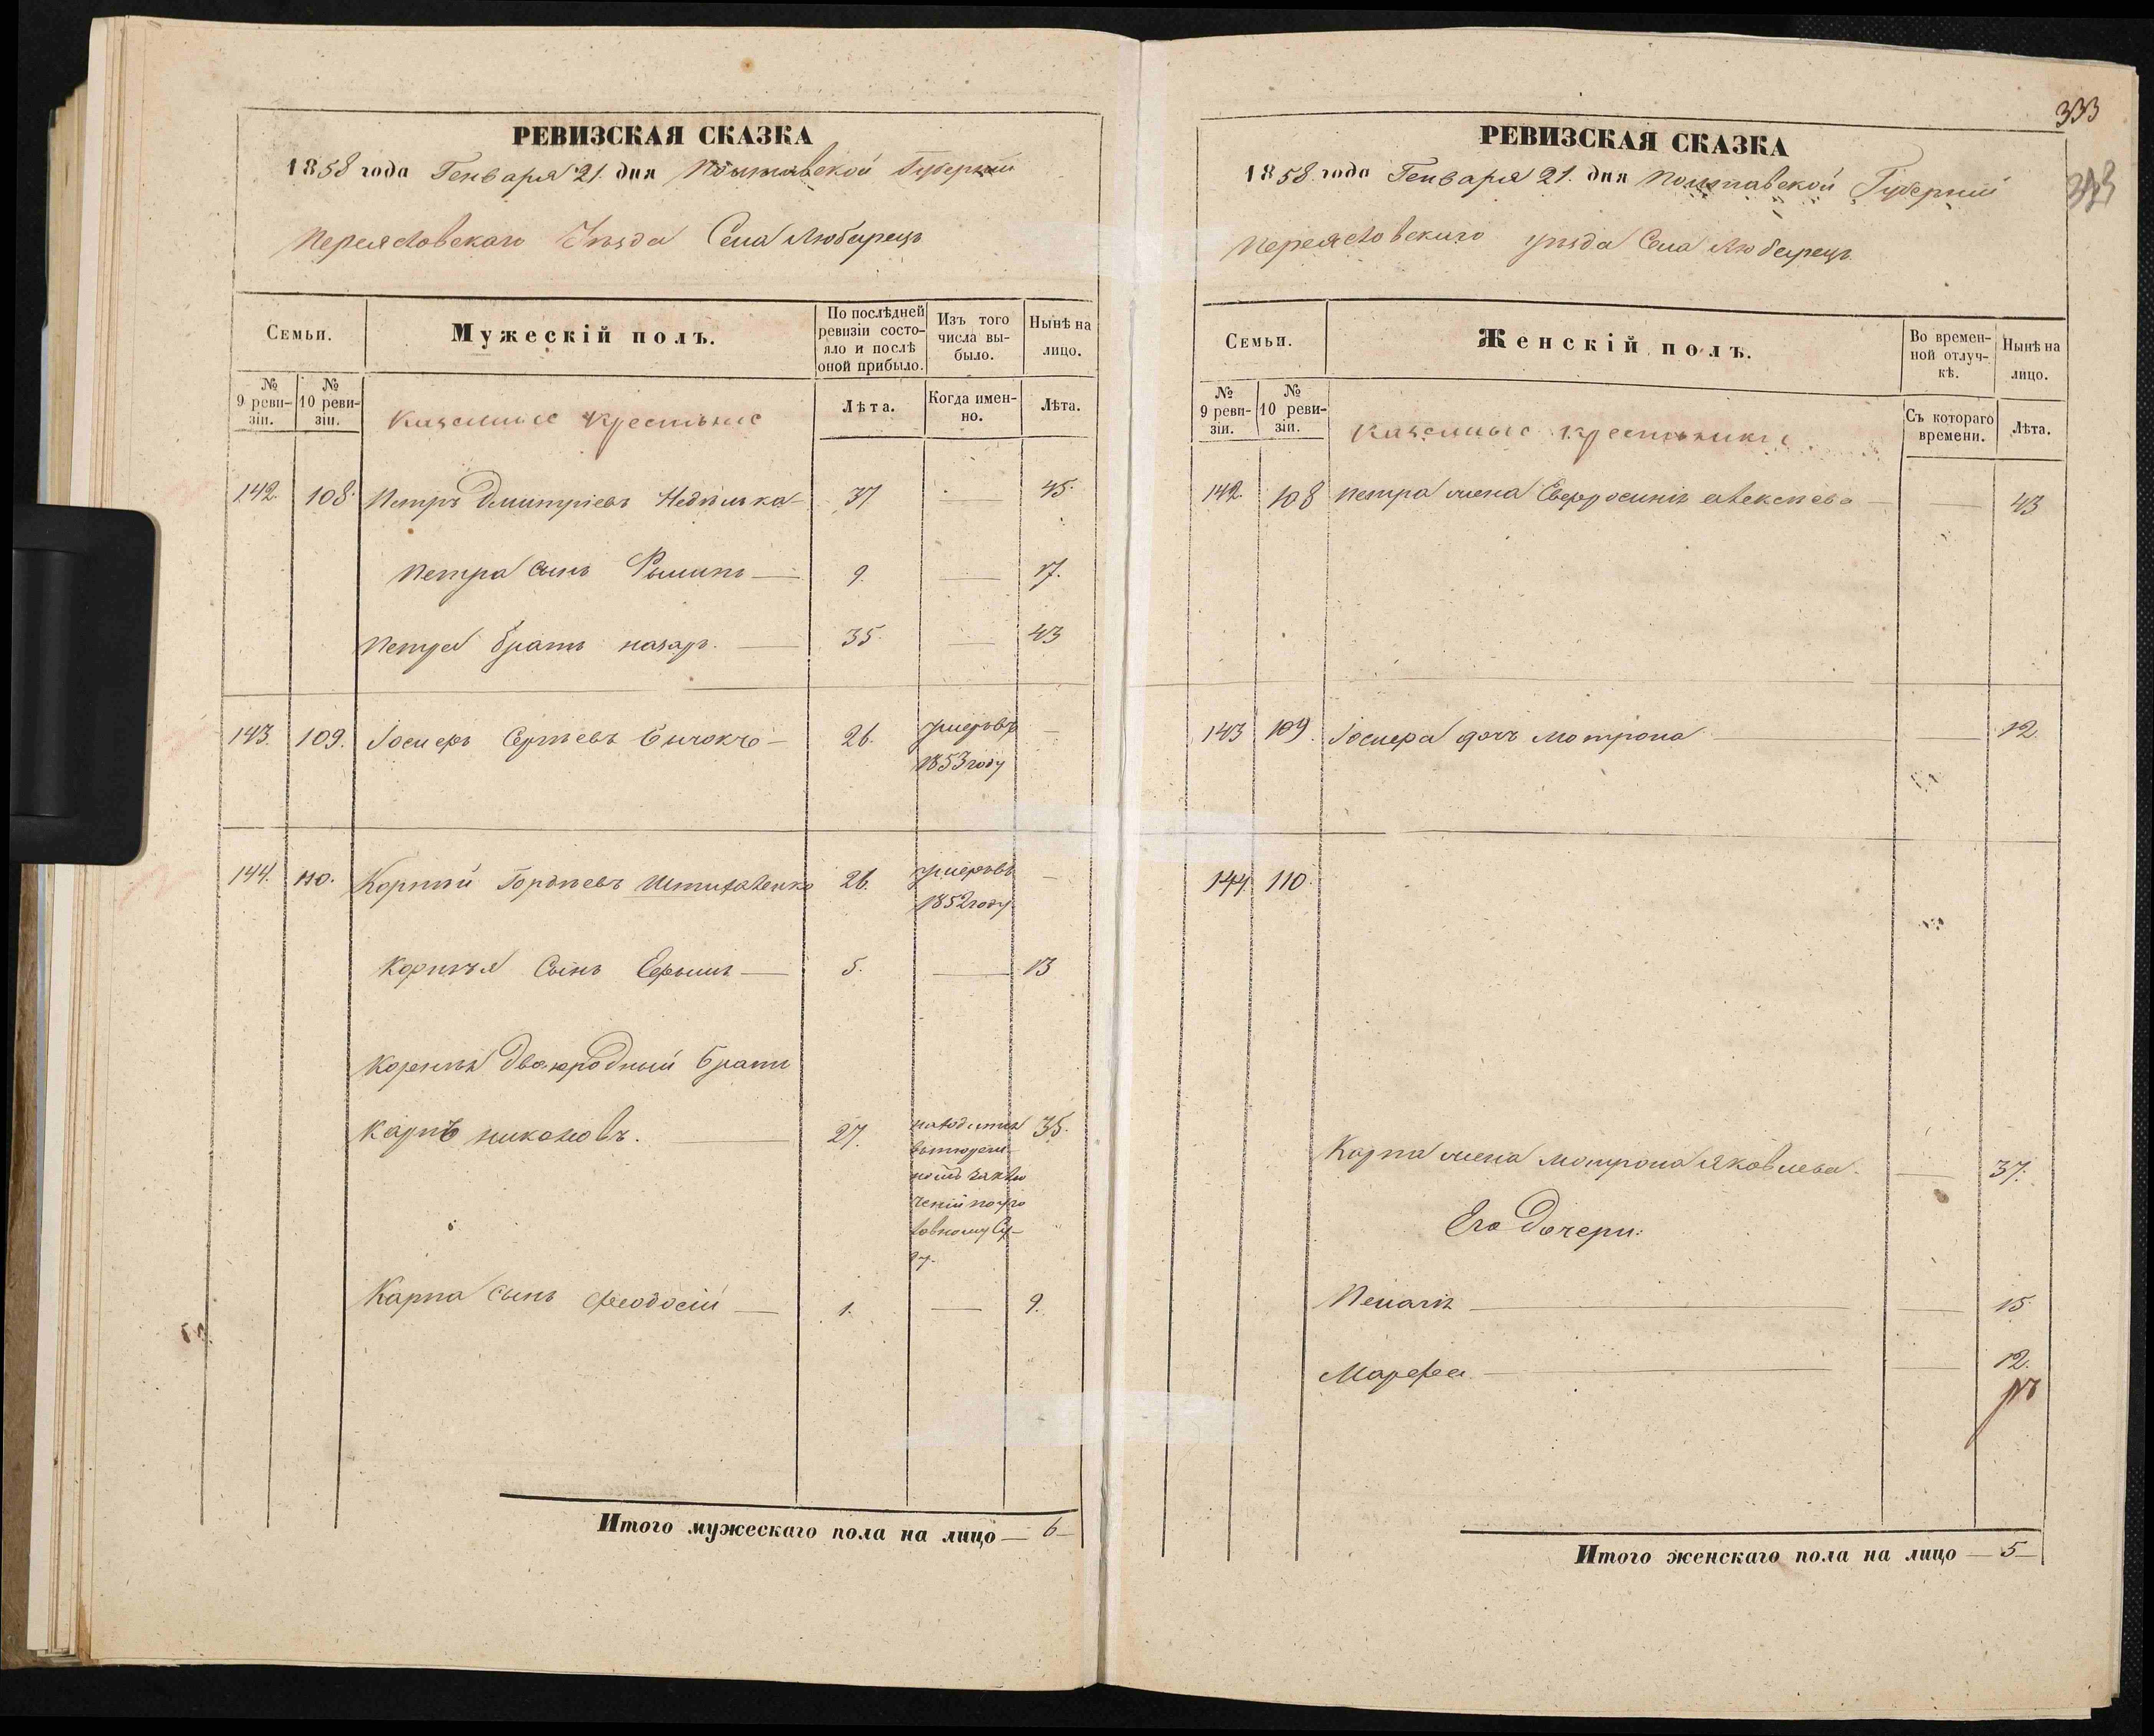 РЕВИЗСКАЯ СКАЗКА
1858 года Генваря 21. дня Полтавской Губернии
Переяславскаго Уѣзда Села Любарецъ
Семьи.
Мужескій полъ.
По послѣдней ревизіи состояло и послѣ оной прибыло.
Изъ того числа выбыло.
Нынѣ на лицо.
№ 9 ревизіи.
№ 10 ревизіи.
Казенные Крестьяне
Лѣта.
Когда именно.
Лѣта.
142. 108. Петръ Дмитріевъ Недѣлька — 37 — 45.
Петра сынъ — 9. — 17.
Петра братъ назаръ. — 35. — 43
143. 109. Іосифъ Сергѣевъ — 26. умеръ въ —
1853 году
144. 110. Корнѣй Гордѣевъ 26. умеръ въ —
1852 году
Корнѣя Сынъ — 5. — 13
Корнѣя двоюродный братъ
Карпъ никоновъ. — 27. находится 35.
Карпа сынъ Феодосій — 1. — 9.
Итого мужескаго пола на лицо — 6 —
333
РЕВИЗСКАЯ СКАЗКА
1858 года Генваря 21. дня Полтавской Губерніи
Переяславскаго уѣзда Села Любарецъ
Семьи.
Женскій полъ.
Во временной отлучкѣ.
Нынѣ на лицо.
№ 9 ревизіи.
№ 10 ревизіи.
Казенные крестьянки
Съ котораго времени.
Лѣта.
142. 108 Петра жена Евфросинія Алексѣева — 43
143 109. Іосифа дочь Мотрона — 12.
144 110.
Карпа жена Мотрона Яковлева. — 37.
Его Дочери:
— 15.
Марфа — 12.
Итого женскаго пола на лицо — 5 —